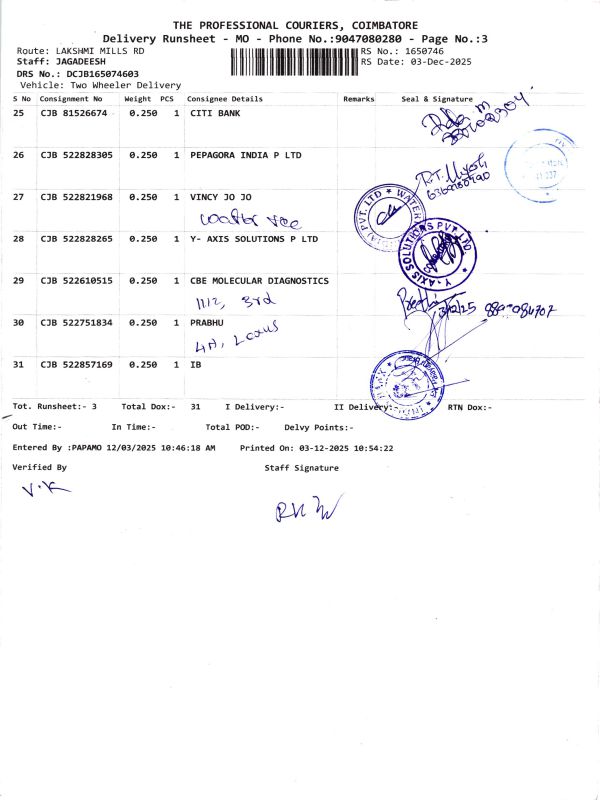 THE PROFESSIONAL COURIERS, COIMBATORE
Delivery Runsheet - MO - Phone No.:9047080280 - Page No.:3
Route: LAKSHMI MILLS RD RS No.: 1650746
Staff: JAGADEESH RS Date: 03-Dec-2025
DRS No.: DCJB165074603
Vehicle: Two Wheeler Delivery
S No Consignment No Weight PCS Consignee Details Remarks Seal & Signature
25 CJB 81526674 0.250 1 CITI BANK
26 CJB 522828305 0.250 1 PEPAGORA INDIA P LTD
6369180490
27 CJB 522821968 0.250 1 VINCY JO JO
PVT. LTD * WATER
28 CJB 522828265 0.250 1 Y- AXIS SOLUTIONS P LTD
Y - AXIS SOLUTIONS PVT LTD
29 CJB 522610515 0.250 1 CBE MOLECULAR DIAGNOSTICS
1112, 3rd
3/12/25
30 CJB 522751834 0.250 1 PRABHU
4A, Lotus
31 CJB 522857169 0.250 1 IB
Tot. Runsheet:- 3 Total Dox:- 31 I Delivery:- II Delivery:- RTN Dox:-
Out Time:- In Time:- Total POD:- Delvy Points:-
Entered By :PAPAMO 12/03/2025 10:46:18 AM Printed On: 03-12-2025 10:54:22
Verified By Staff Signature
V.K